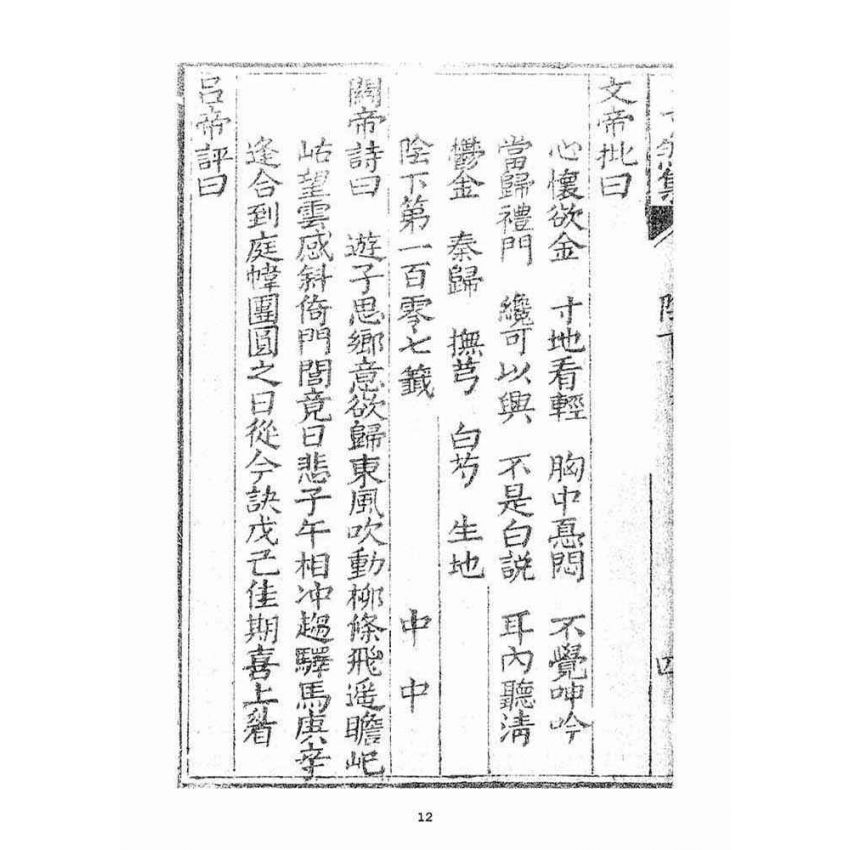 集 四
文帝批曰
心懷欲金 寸地看輕 胸中悶 不覺呻吟
當歸禮門 纔可以興 不是白說 耳內聽清
鬱金 秦歸 撫芎 白芍 生地
陰下第一百零七籤 中中
關帝詩曰 遊子思鄉意欲歸東風吹動柳條飛遥瞻屺
岵望雲感斜倚門閭竟日悲子午相冲趨驛馬庚辛
逢合到庭幃團圓之日從今訣戊己佳期喜上眉
呂帝評曰
12